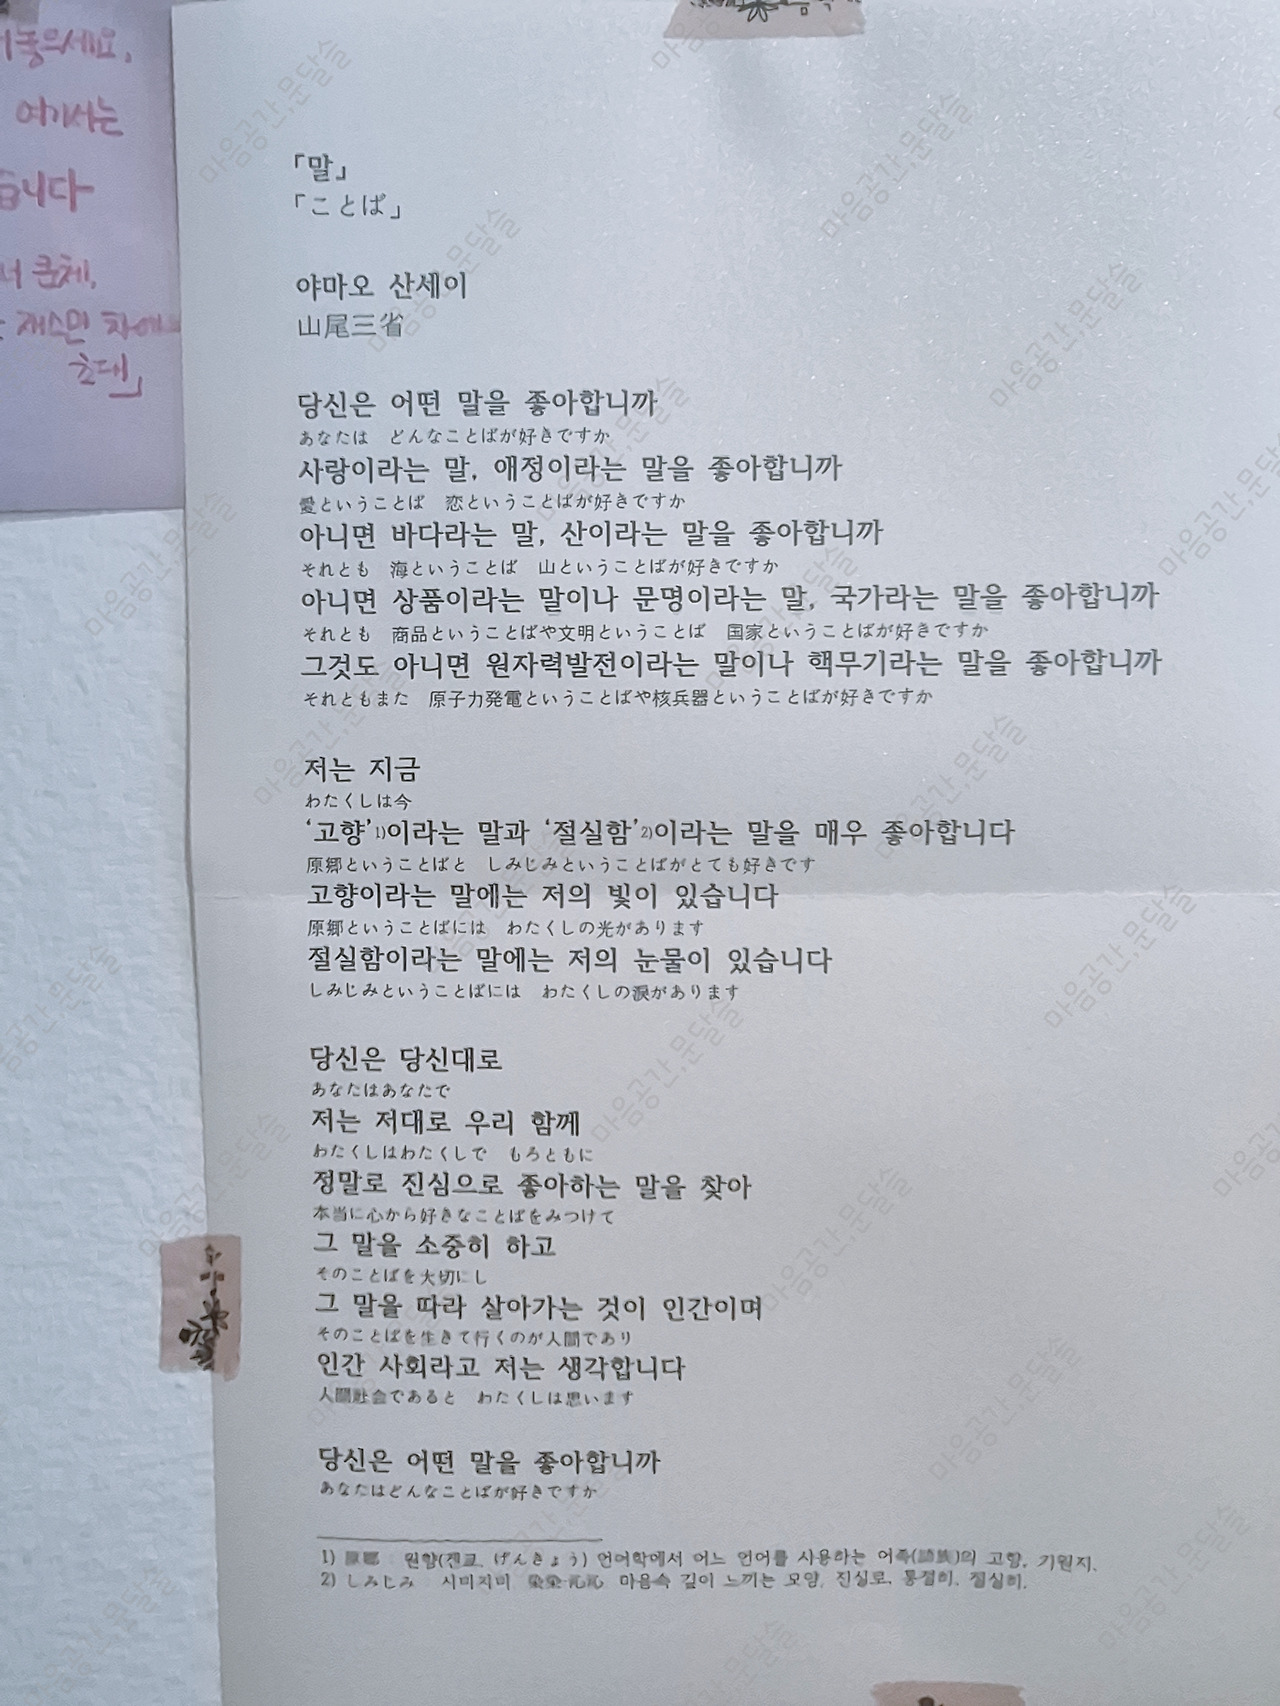 어놓으세요,
여기서는
습니다
서 군체,
재스민 차에
초대」
「말」
「ことば」
야마오 산세이
山尾三省
당신은 어떤 말을 좋아합니까
あなたは どんなことばが好きですか
사랑이라는 말, 애정이라는 말을 좋아합니까
愛ということば 恋ということばが好きですか
아니면 바다라는 말, 산이라는 말을 좋아합니까
それとも 海ということば 山ということばが好きですか
아니면 상품이라는 말이나 문명이라는 말, 국가라는 말을 좋아합니까
それとも 商品ということばや文明ということば 国家ということばが好きですか
그것도 아니면 원자력발전이라는 말이나 핵무기라는 말을 좋아합니까
それともまた 原子力発電ということばや核兵器ということばが好きですか
저는 지금
わたくしは今
‘고향’1)이라는 말과 ‘절실함’2)이라는 말을 매우 좋아합니다
原郷ということばと しみじみということばがとても好きです
고향이라는 말에는 저의 빛이 있습니다
原郷ということばには わたくしの光があります
절실함이라는 말에는 저의 눈물이 있습니다
しみじみということばには わたくしの涙があります
당신은 당신대로
あなたはあなたで
저는 저대로 우리 함께
わたくしはわたくしで もろともに
정말로 진심으로 좋아하는 말을 찾아
本当に心から好きなことばをみつけて
그 말을 소중히 하고
そのことばを大切にし
그 말을 따라 살아가는 것이 인간이며
そのことばを生きて行くのが人間であり
인간 사회라고 저는 생각합니다
人間社会であると わたくしは思います
당신은 어떤 말을 좋아합니까
あなたはどんなことばが好きですか
1) 原郷 : 원향(겐쿄, げんきょう) 언어학에서 어느 언어를 사용하는 어족(語族)의 고향, 기원지.
2) しみじみ 시미지미 染染·沁沁 마음속 깊이 느끼는 모양, 진실로, 통절히, 절실히.
마음공간,문달슬